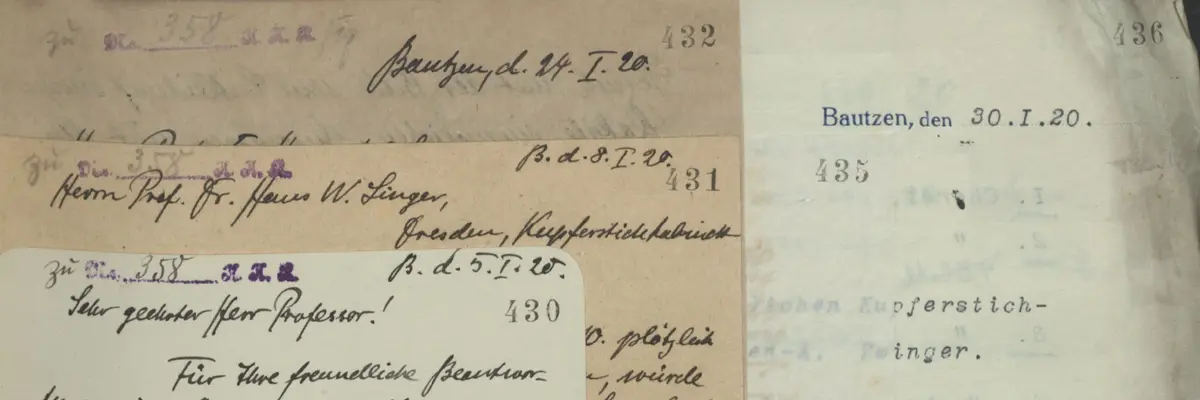 zu No. 358 K.K.K.
432
Bautzen, d. 24. I. 20.
zu No. 358 K.K.K.
B. d. 8. I. 20.
431
Herrn Prof. Dr. Hans W. Singer,
Dresden, Kupferstichkabinett
zu No. 358 K.K.K.
B. d. 5. I. 20.
Sehr geehrter Herr Professor!
430
Für Ihre freundliche Beantwor-
plötzlich
würde
436
Bautzen, den 30.I.20.
435
lichen Kupferstich-
inger.